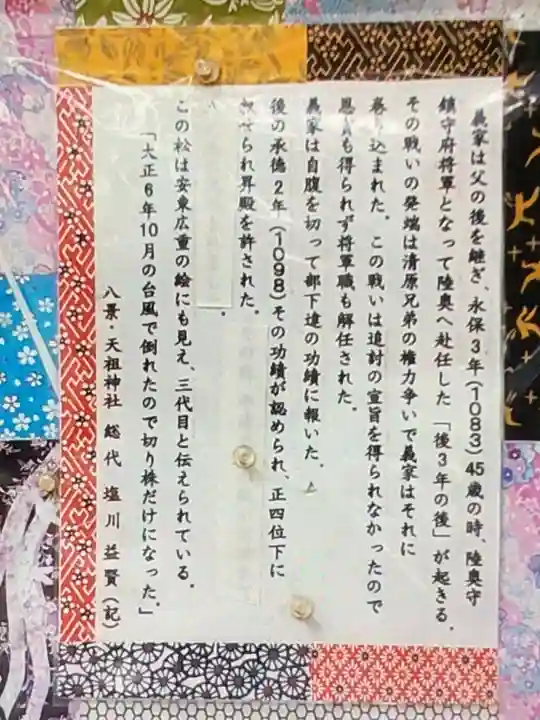 義家は父の後を継ぎ、永保3年(1083)45歳の時、陸奥守
鎮守府将軍となって陸奥へ赴任した「後3年の後」が起きる.
その戦いの発端は清原兄弟の権力争いで義家はそれに
巻き込まれた。この戦いは追討の宣旨を得られなかったので
恩賞も得られず将軍職も解任された。
義家は自腹を切って部下達の功績に報いた。
後の承徳2年(1098)その功績が認められ、正四位下に
叙せられ昇殿を許された.
この松は安東広重の絵にも見え、三代目と伝えられている.
「大正6年10月の台風で倒れたので切り株だけになった.」
八景・天祖神社 総代 塩川 益賢(記)